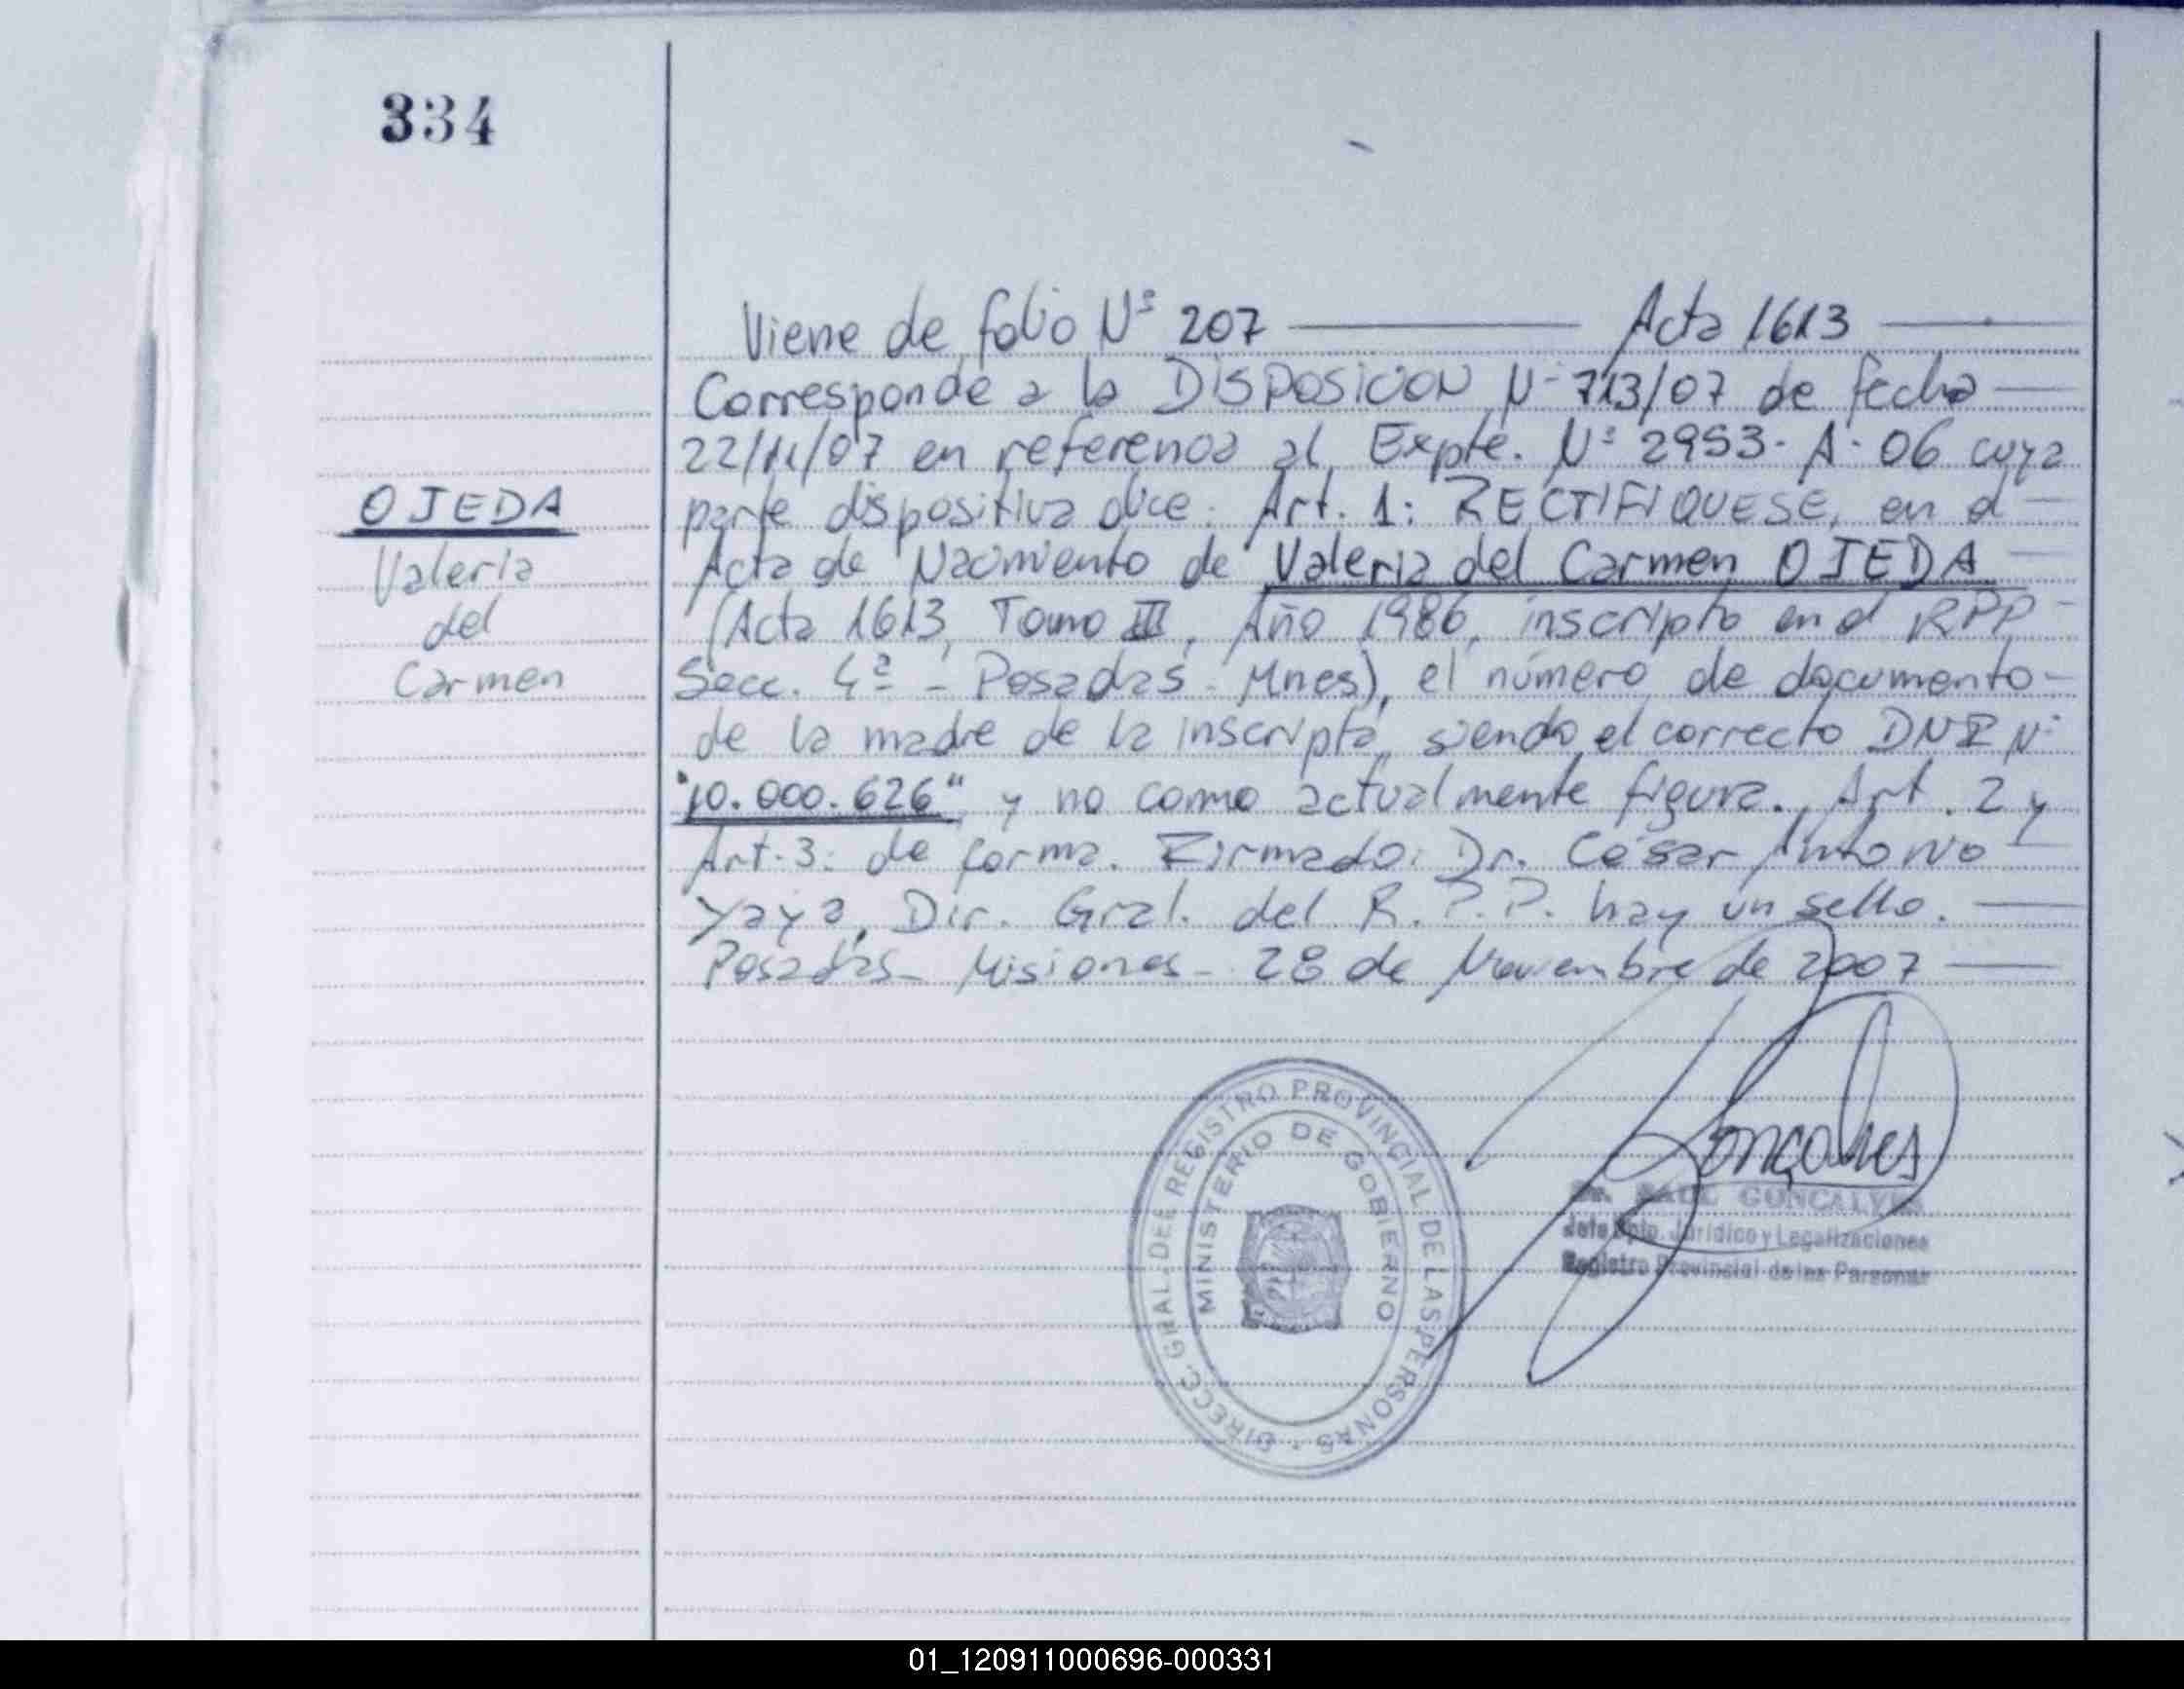 334
Viene de folio Nº 207 ——— Acta 1613 ——
Corresponde a la DISPOSICION Nº 713/07 de fecha —
22/11/07 en referencia al Expte. Nº 2953-A-06 cuya
parte dispositiva dice: Art. 1: RECTIFIQUESE, en el —
Acta de Nacimiento de Valeria del Carmen OJEDA —
(Acta 1613, Tomo III, Año 1986, inscripto en el RPP —
Secc. 4ª - Posadas - Mnes), el número de documento -
de la madre de la inscripta, siendo el correcto DNI Nº
"10.000.626" y no como actualmente figura. Art. 2 y
Art. 3: de forma. Firmado: Dr. César Antonio —
Yaya, Dir. Gral. del R.P.P. hay un sello. ——
Posadas - Misiones - 28 de Noviembre de 2007 ——
OJEDA
Valeria
del
Carmen
DIRECC. GRAL. DEL REGISTRO PROVINCIAL DE LAS PERSONAS
MINISTERIO DE GOBIERNO
Gonçalves
Dr. RAUL GONCALVES
Jefe Dpto. Jurídico y Legalizaciones
Registro Provincial de las Personas
01_120911000696-000331